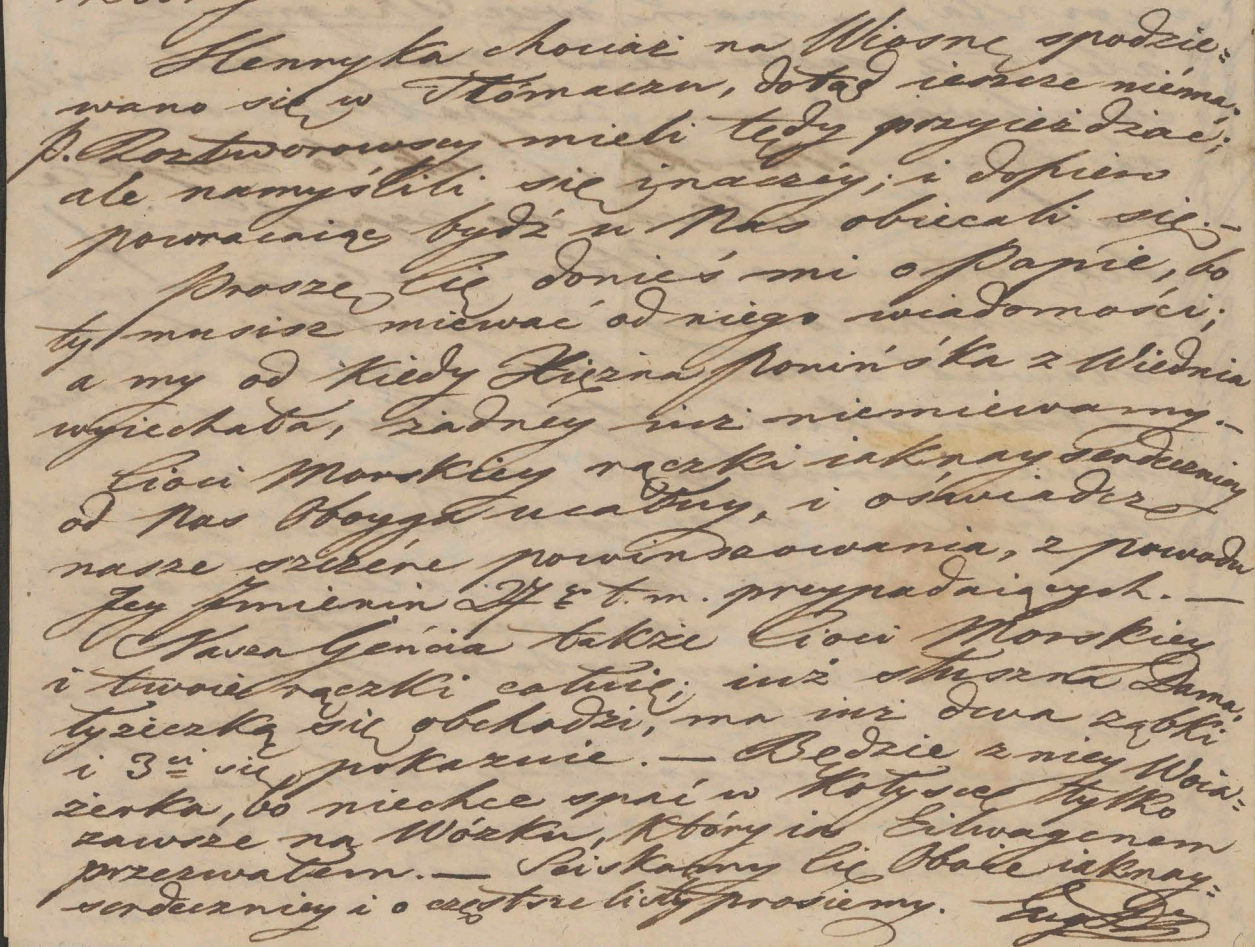 Henryka chociaż na Wiosnę spodzie=
wano się w Tłómaczu, dotąd ieszcze niéma.
P. Roztworowscy mieli tędy przyieżdżać;
ale namyślili się inaczéy; i dopiero
powracaiąc bydź u Nas obiecali się. –
Proszę Cię donieś mi o Papie, bo
ty musisz miewać od niego wiadomości;
a my od kiedy Xiężna Ponińśka z Wiednia
wyiechała, żadnéy iuż niemiewamy. –
Cioci Morskiey rączki iaknay serdeczniey
od Nas Oboyga ucałuy, i oświadcz
nasze szczére powinszowania, z powodu
Jey Jmienin 27 t. m. przypadaiących. –
Nasza Geńcia także Cioci Morskiey
i twoie rączki całuię; iuż słuszna Dama,
łyżeczką się obchodzi, ma iuż dwa ząbki
i 3ci się pokazuie. – Będzie z niey Woia=
żerka, bo niechce spać w Kołysce, tylko
zawsze na Wózku, który ia Eilwagenem
przezwałem. – Sciskamy Cię Oboie iaknay=
serdeczniey i o częstsze listy prosiemy.